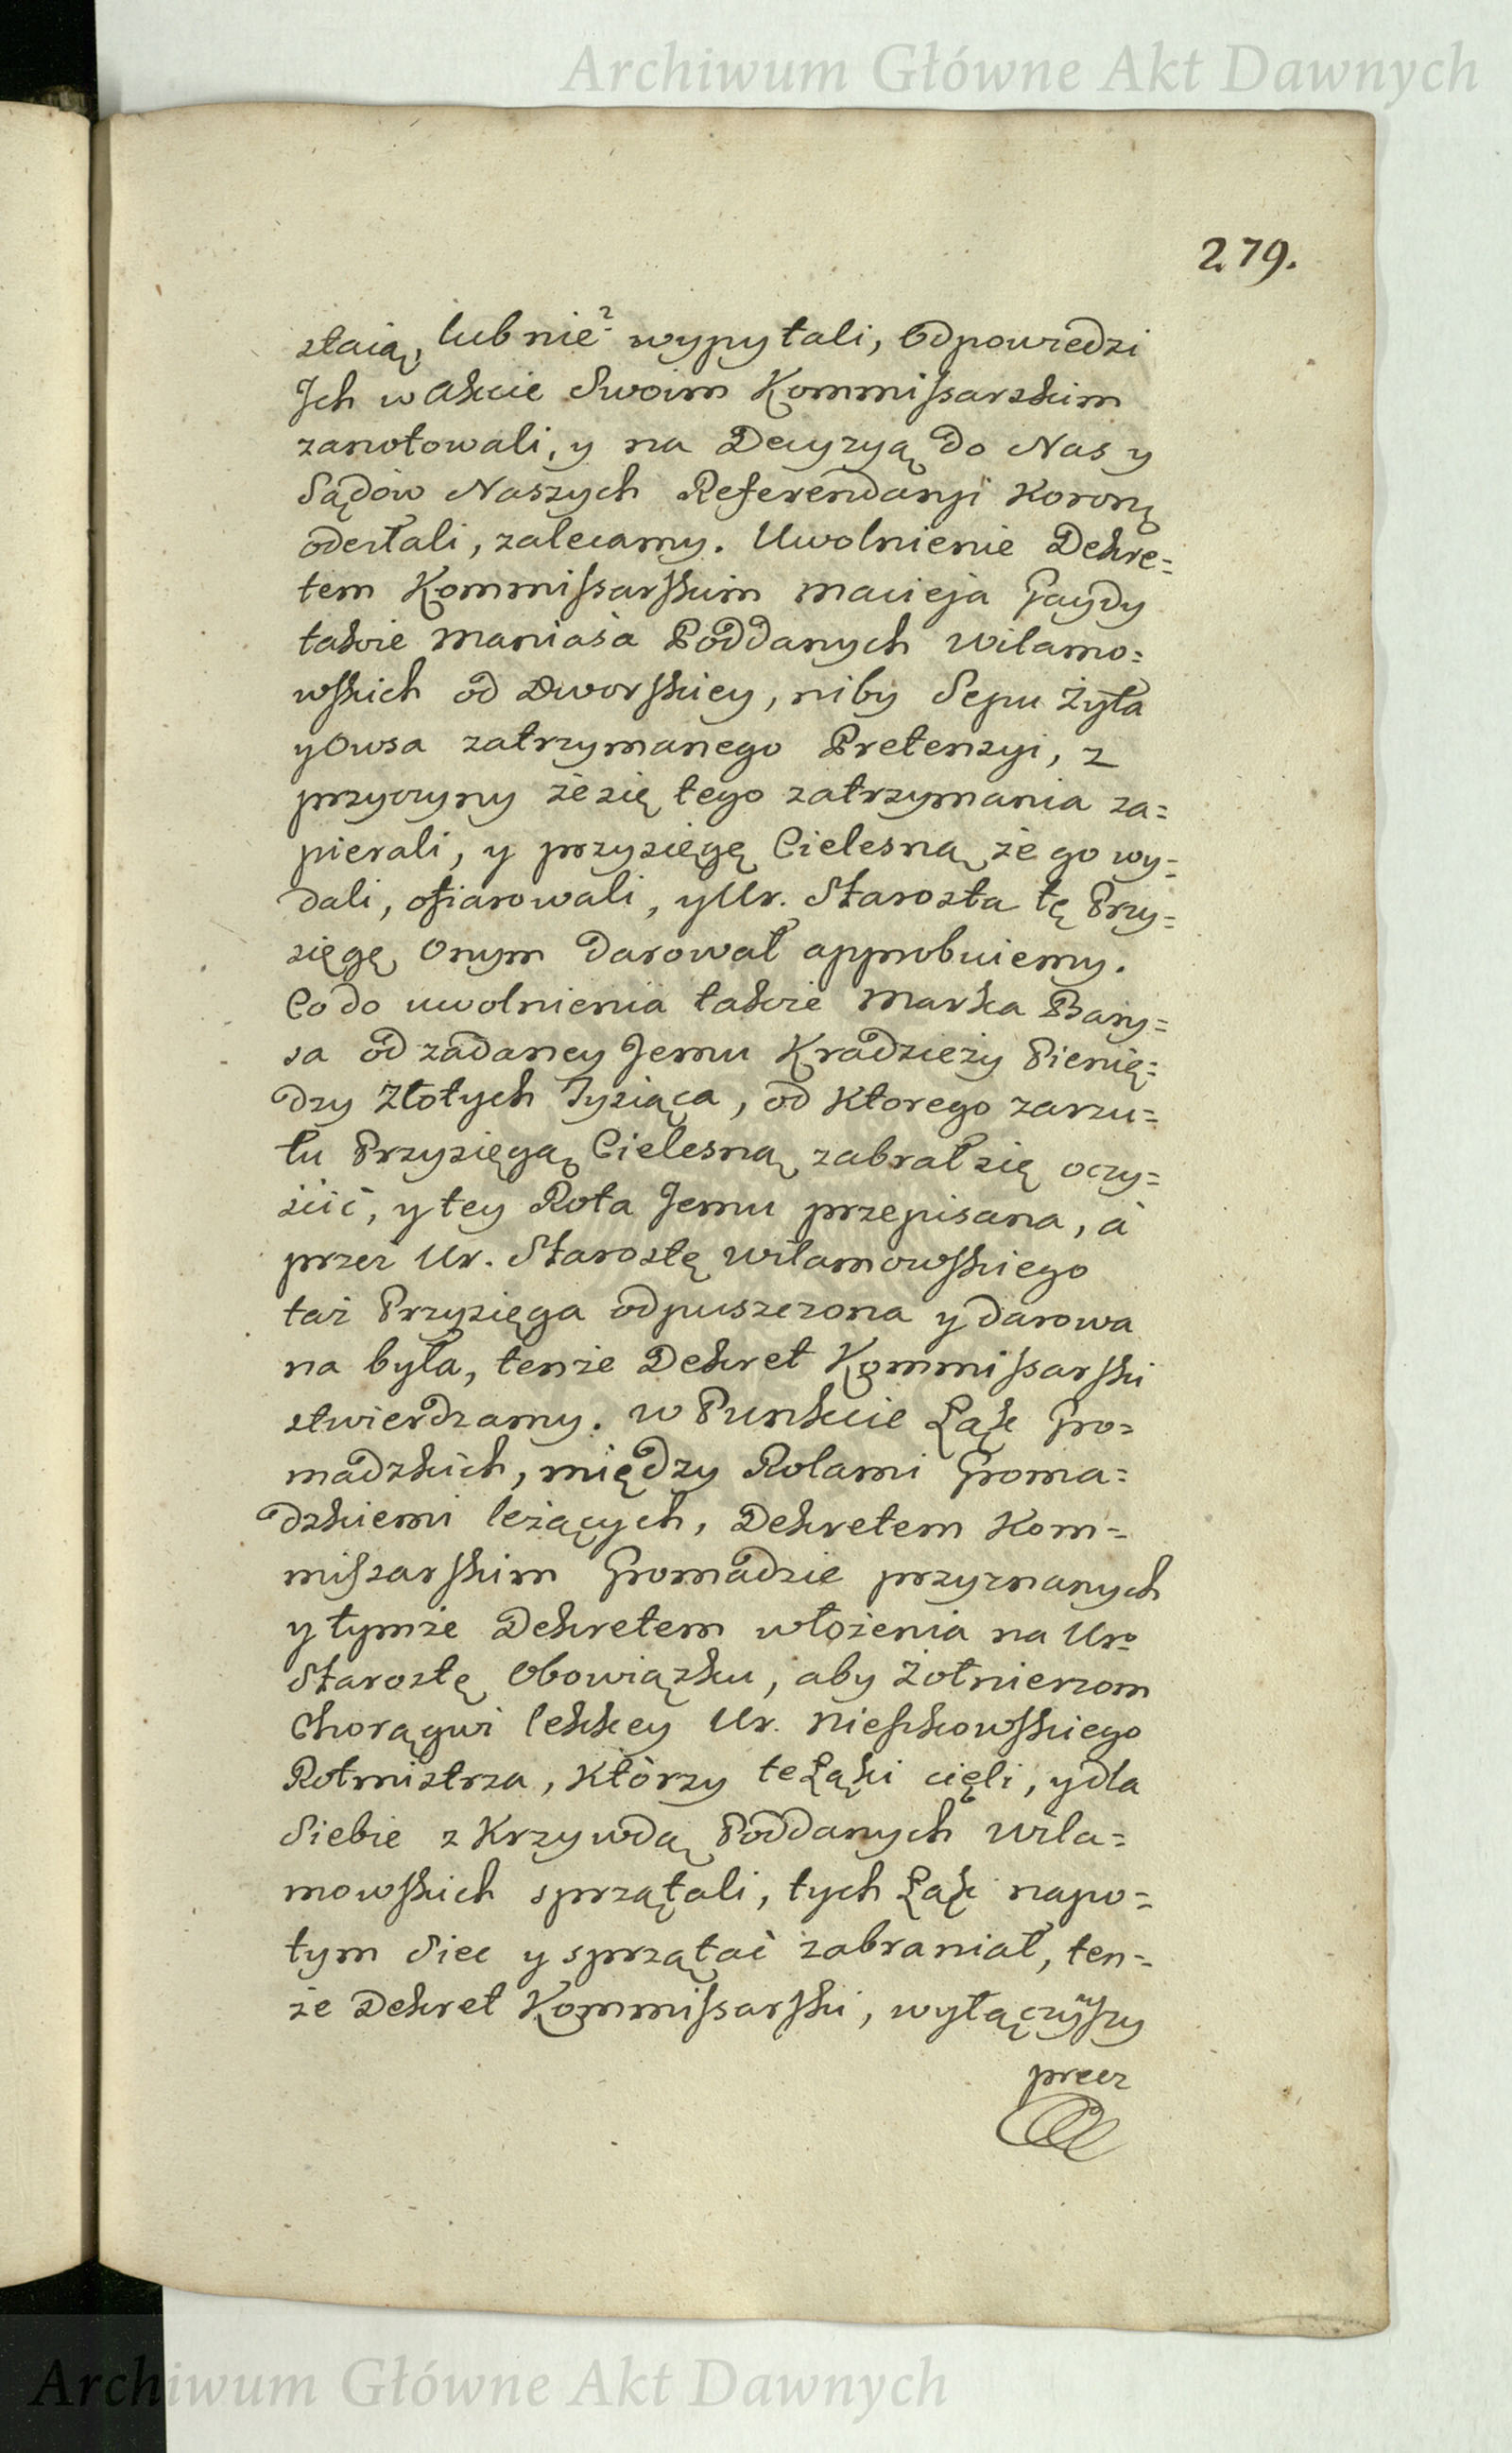 Archiwum Główne Akt Dawnych
279.
staią, lub nie? wypytali, Odpowiedzi
Ich w Akcie Swoim Kommissarskim
zanotowali, y na Decyzyą do Nas y
Sądów Naszych Referendaryi Koronę
odesłali, zalecamy. Uwolnienie Dekre=
tem Kommissarskim Macieja Gaydy
takie Maniasa Poddanych Wilamo=
wskich od Dworskiey, niby Sepu Żyta
y Owsa zatrzymanego Pretensyi, z
przyczyny że się tego zatrzymania za=
pierali, y przysięgę Cielesną że go wy=
dali, ofiarowali, y Ur. Starosta tę Przy=
sięgę Onym darował approbuiemy.
Co do uwolnienia także Marka Bary=
sa od zadaney Jemu Kradzieży Pienię=
dzy Złotych Tysiąca, od Ktorego zarzu=
tu Przysięgą Cielesną zabrał się oczy=
ścić, y tey Rota Jemu przepisana, á
przez Ur. Starostę Wilamowskiego
taż Przysięga odpuszczona y darowa
na była, tenże Dekret Kommissarski
stwierdzamy. W Punkcie Łąk Gro=
madzkich, między Rolami Groma=
dzkiemi leżących, Dekretem Kom=
missarskim Gromadzie przyznanych
y tymże Dekretem włożenia na Uro
Starostę Obowiązku, aby Żołnierzom
Chorągwi lekkey Ur. Nieszkowskiego
Rotmistrza, Którzy te Łąki cięli, y dla
Siebie z Krzywdą Poddanych Wila=
mowskich sprzątali, tych Łąk napo=
tym Siec y sprzątać zabraniał, ten=
że Dekret Kommissarski, wyłączywszy
precz
Archiwum Główne Akt Dawnych